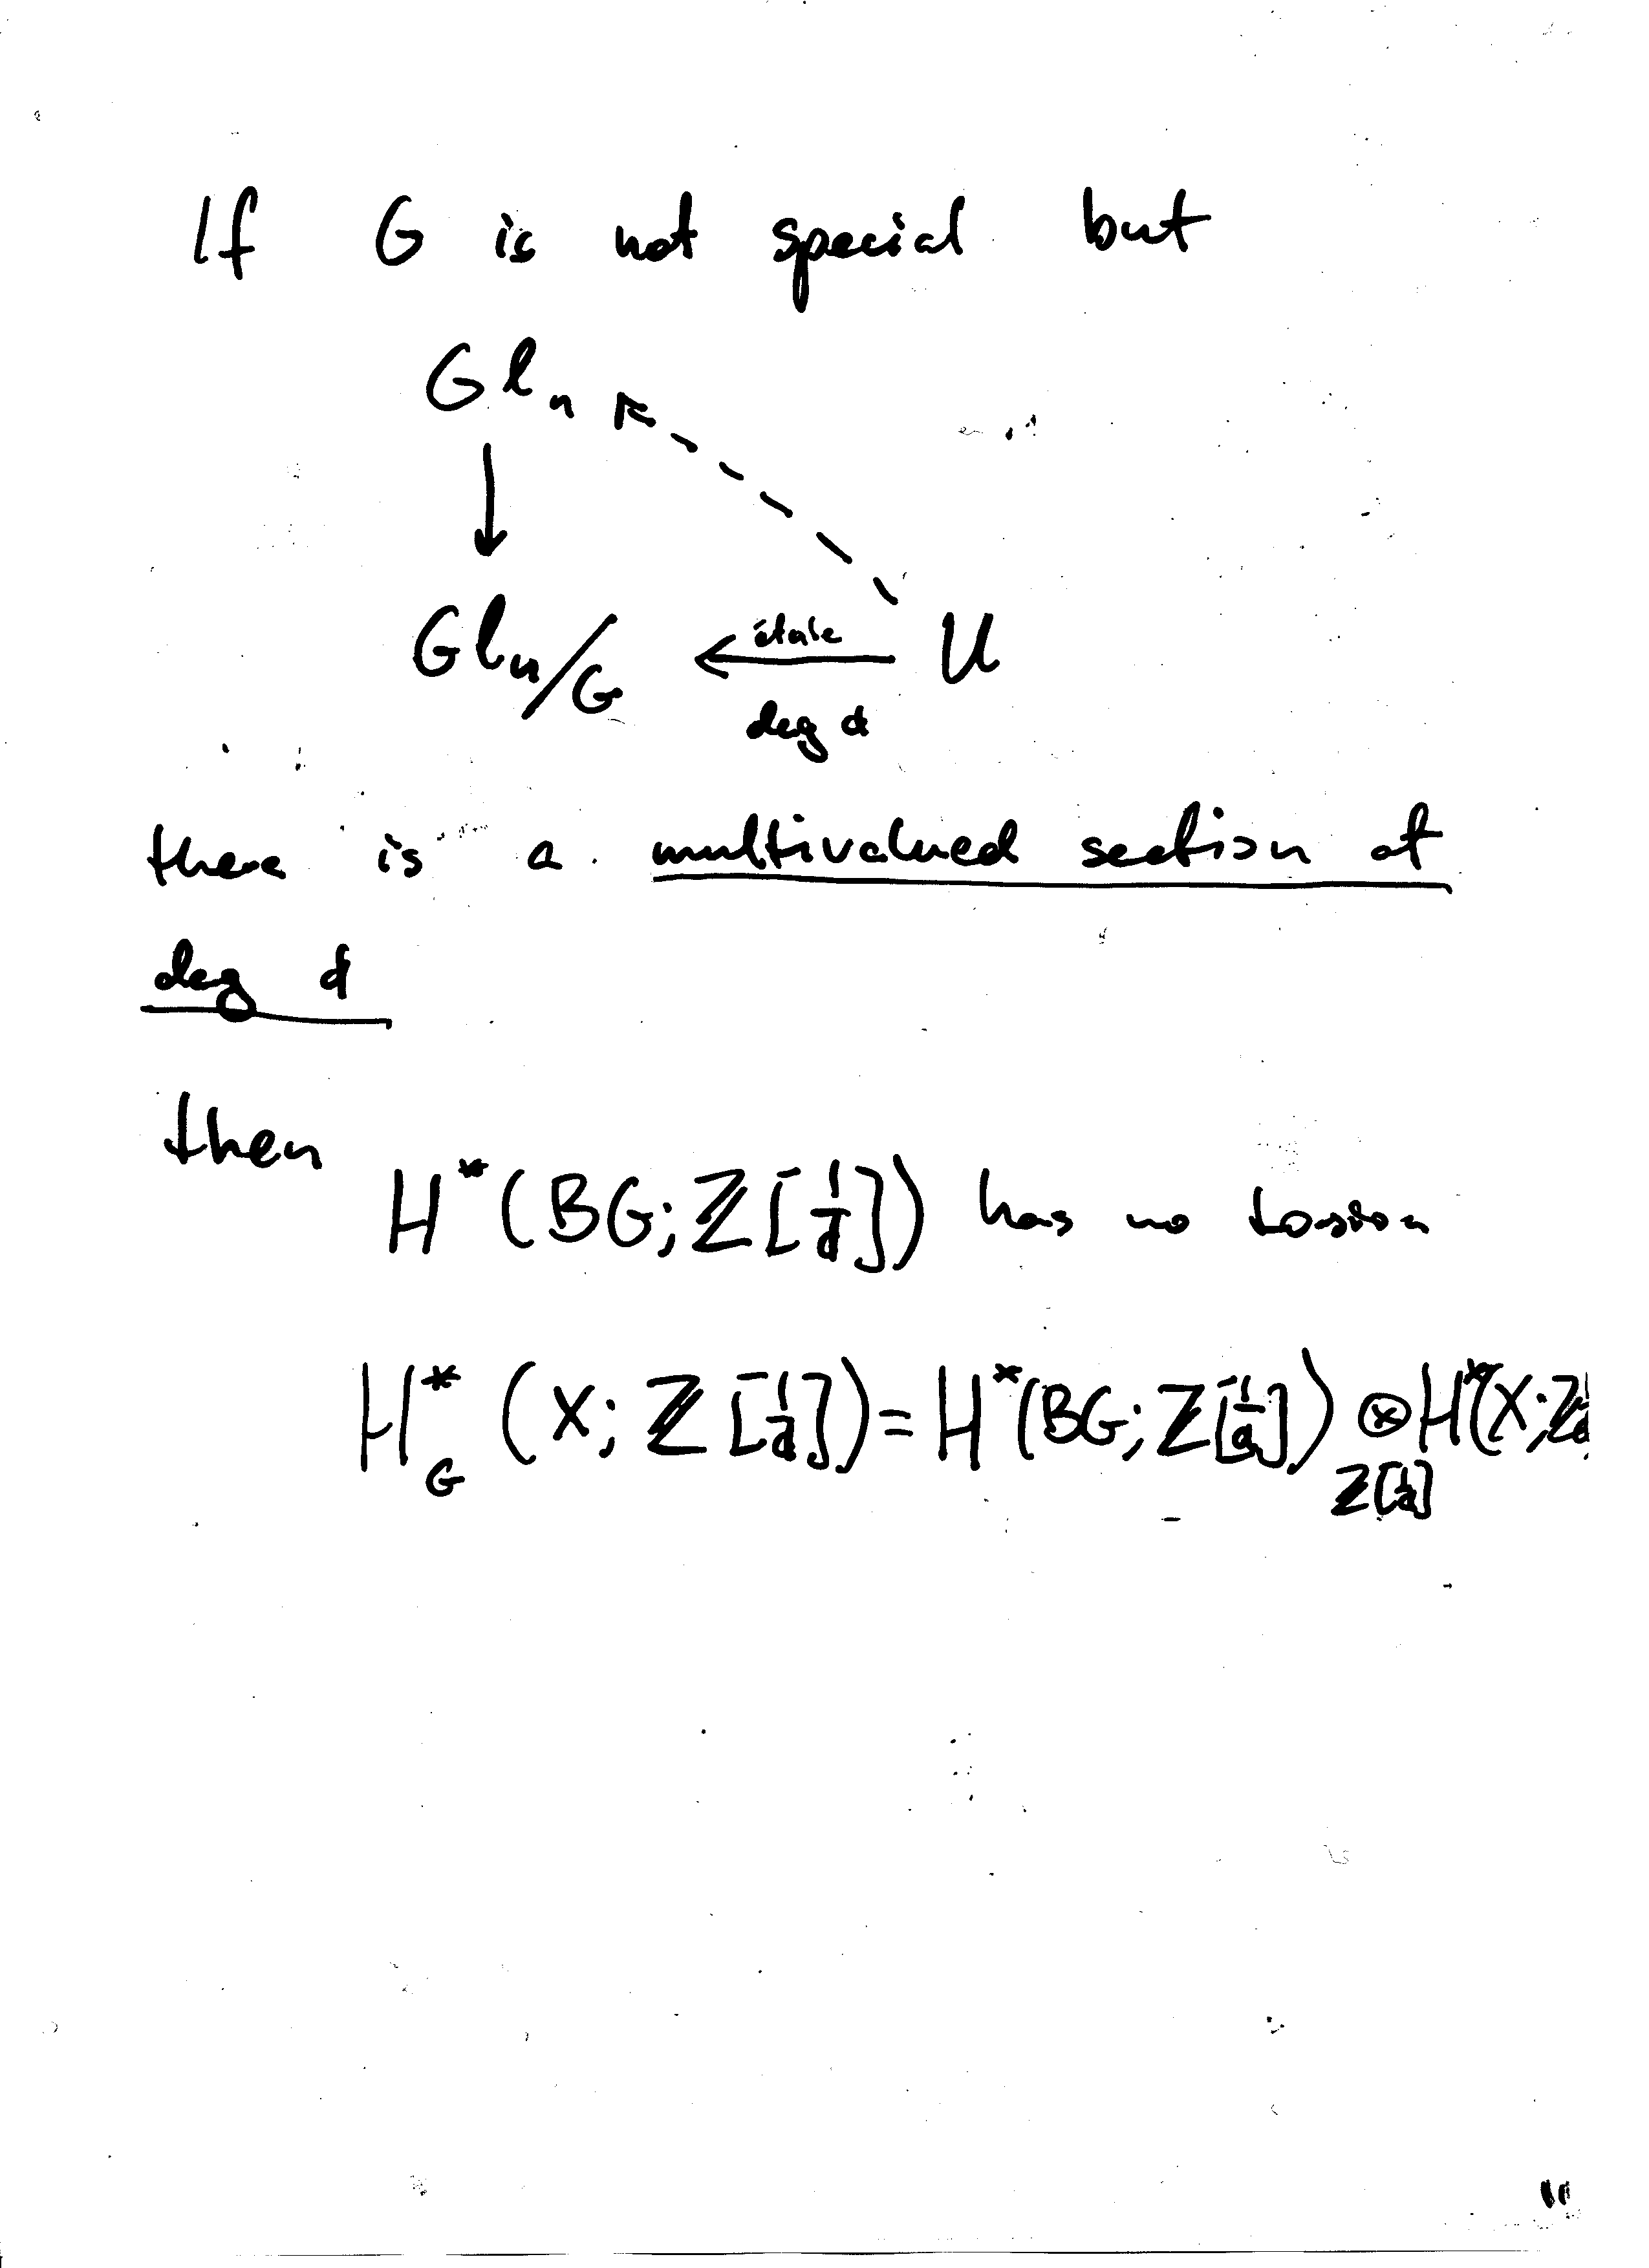 If G is not special but
Gl_n
étale
Gl_n/G U
deg d
there is a multivalued section of
deg d
then
H^*(BG; ℤ[1/d]) has no torsion
H^*_G(X; ℤ[1/d]) = H^*(BG; ℤ[1/d]) ⊗_{ℤ[1/d]} H^*(X; ℤ